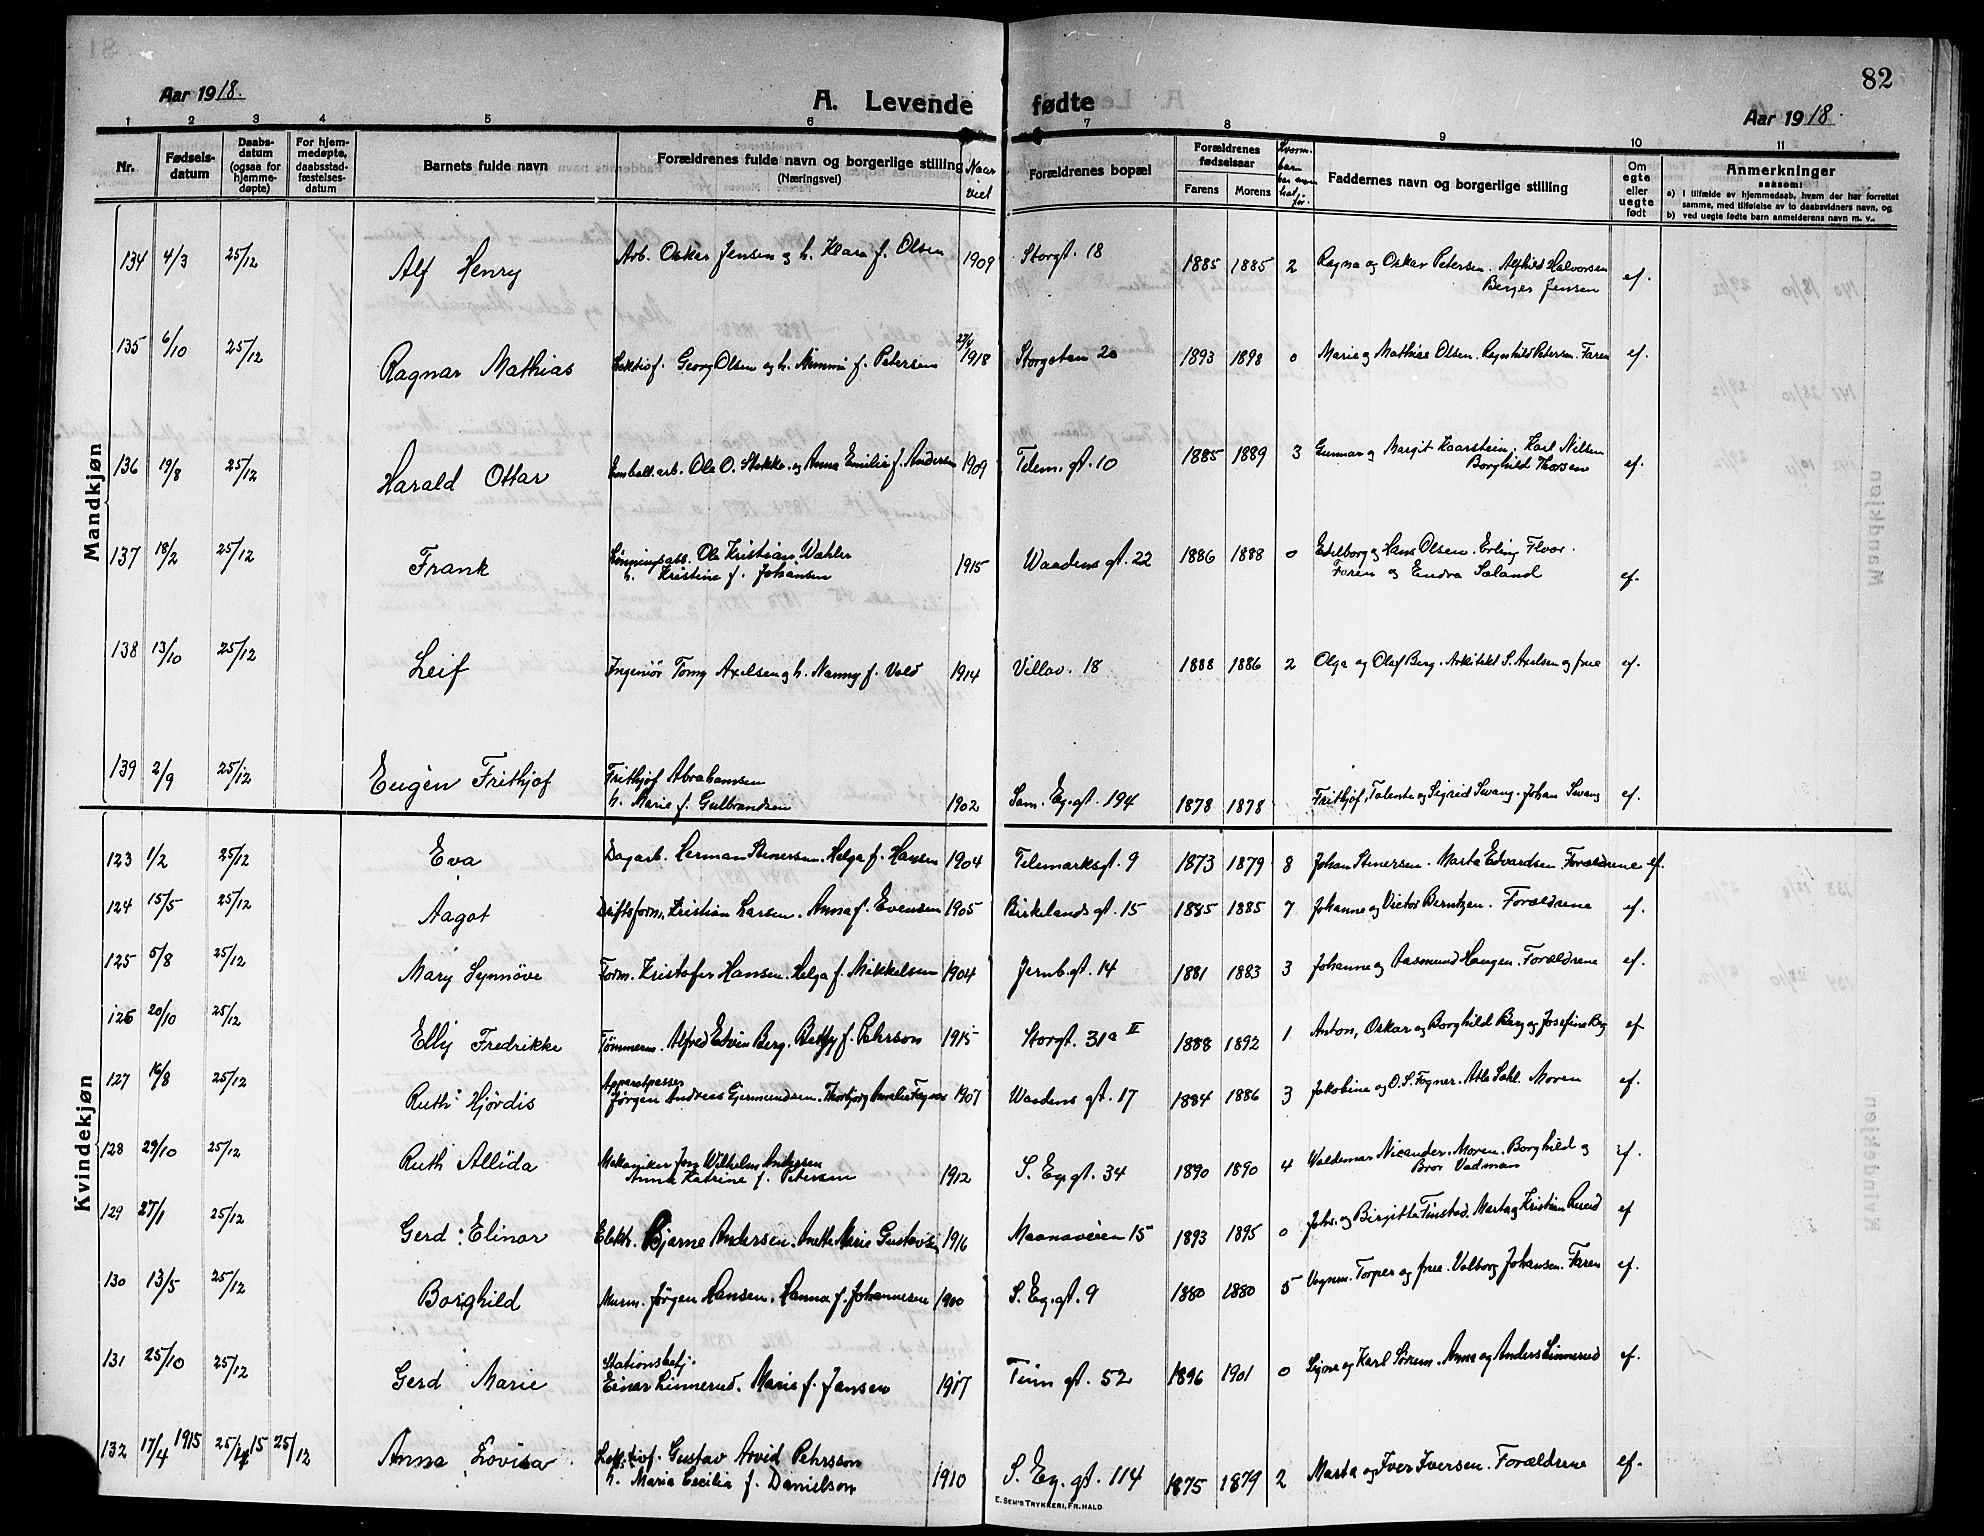 82
Aar 1918.
A. Levende fødte
Aar 1918.
1 2 3 4 5 6 7 8 9 10 11
Nr.
Fødsels-
datum
Daabs-
datum
(ogsaa for
hjemme-
døpte)
For hjem-
medøpte,
daabsstad-
fæstelses-
datum
Barnets fulde navn
Forældrenes fulde navn og borgerlige stilling
(Næringsvei)
Naar
viet
Forældrenes bopæl
Forældrenes
fødselsaar
Farens
Morens
Faddernes navn og borgerlige stilling
Om
egte
eller
uegte
født
Anmerkninger
saasom:
a) I tilfælde av hjemmedaab, hvem der har forrettet
samme, med tilføielse av to daabsvidners navn, og
b) ved uegte fødte barn anmelderens navn m. v.
Mandkjøn
134 4/3 25/12 Alf Henry Arb. Oskar Jensen og h. Klara f. Olsen 1909 Storgt. 18 1885 1885 2 Ragna og Oskar Petersen. Alfhild Halvorsen
Berger Jensen ef.
135 6/10 25/12 Ragnar Mathias Georg Olsen og h. Mimmi f. Petersen 27/4 1918 Storgaten 20 1893 1898 0 Marie og Mathias Olsen. Ragnhild Petersen. Faren ef.
136 19/8 25/12 Harald Ottar Emball. arb. Ole O. Stokke og Anna Emilie f. Andersen 1909 Telem. gt. 10 1885 1889 3 Gunnar og Margit Kaarstein, Karl Nilsen
Borghild Thorsen ef.
137 18/2 25/12 Frank Lønningsass. Ole Kristian Wahler
h. Kristine f. Johansen 1915 Waadens gt. 22 1886 1888 0 Edelborg og Hans Olsen. Erling Floor.
Faren og Endra Sæland ef.
138 13/10 25/12 Leif Ingeniør Tomy Axelsen og h. Nanny f. Vold 1914 Villav. 18 1888 1886 2 Olga og Olaf Berg. Arkitekt S. Axelsen og frue ef.
139 2/9 25/12 Eugèn Frithjof Frithjof Abrahamsen
h. Marie f. Gulbrandsen 1902 Sam. Eg. gt. 194 1878 1878 Frithjof, Talente og Sigrid Svang. Johan Svang ef.
Kvindekjøn
123 1/2 25/12 Eva Dagarb. Herman Stenersen. Helga f. Hansen 1904 Telemarksgt. 9 1873 1879 8 Johan Stenersen. Marta Edvardsen Forældrene ef.
124 15/5 25/12 Aagot Driftsform. Kristian Larsen. Anna f. Evensen 1905 Birkelands gt. 15 1885 1885 7 Johanne og Victor Berntzen. Forældrene ef.
125 5/8 25/12 Mary Synnöve Form. Kristofer Hansen. Helga f. Mikkelsen 1904 Jernb. gt. 14 1881 1883 3 Johanne og Aasmund Haugen. Forældrene ef.
126 20/10 25/12 Elly Fredrikke Tömmerm. Alfred Edvin Berg. Betty f. Pehrson 1915 Storgt. 31a II 1888 1892 1 Anton, Oskar og Borghild Berg og Josefine Berg ef.
127 16/8 25/12 Ruth Hjördis Apparatpasser
Jørgen Andreas Gjermundsen. Thorbjørg Amalie Fagnæs 1907 Waadens gt. 17 1884 1886 3 Jakobine og O. S. Fogner. Atle Dahl. Moren ef.
128 29/10 25/12 Ruth Allida Mekaniker Jon Wilhelm Andersen
Anna Katrine f. Petersen 1912 S. Eg. gt. 34 1890 1890 4 Waldemar Nicander. Moren. Borghild og
Bror Vadman ef.
129 27/1 25/12 Gerd Elinor Elektr. Bjarne Andersen. Anette Marie Gustavsen 1916 Maanaveien 15 1893 1895 0 Johs. og Birgitte Finstad. Marta og Kristian Ruud ef
130 13/5 25/12 Borghild Murm. Jørgen Hansen. Hanna f. Johannesen 1900 S. Eg. gt. 9 1880 1880 5 Vognm. Torper og frue. Valborg Johansen. Faren ef.
131 25/10 25/12 Gerd Marie Stationsbetj.
Einar Linnerud. Marie f. Jansen 1917 Tinn gt. 52 1896 1901 0 Signe og Karl Sörum. Anna og Anders Linnerud ef.
132 17/4 1915 25/4 15 25/12 Anna Lovisa Gustav Arvid Pehrsson
h. Maria Cecilia f. Danielson 1910 S. Eg. gt. 114 1875 1879 2 Marta og Iver Iversen. Forældrene ef.
E. SEM'S TRYKKERI, FR.HALD